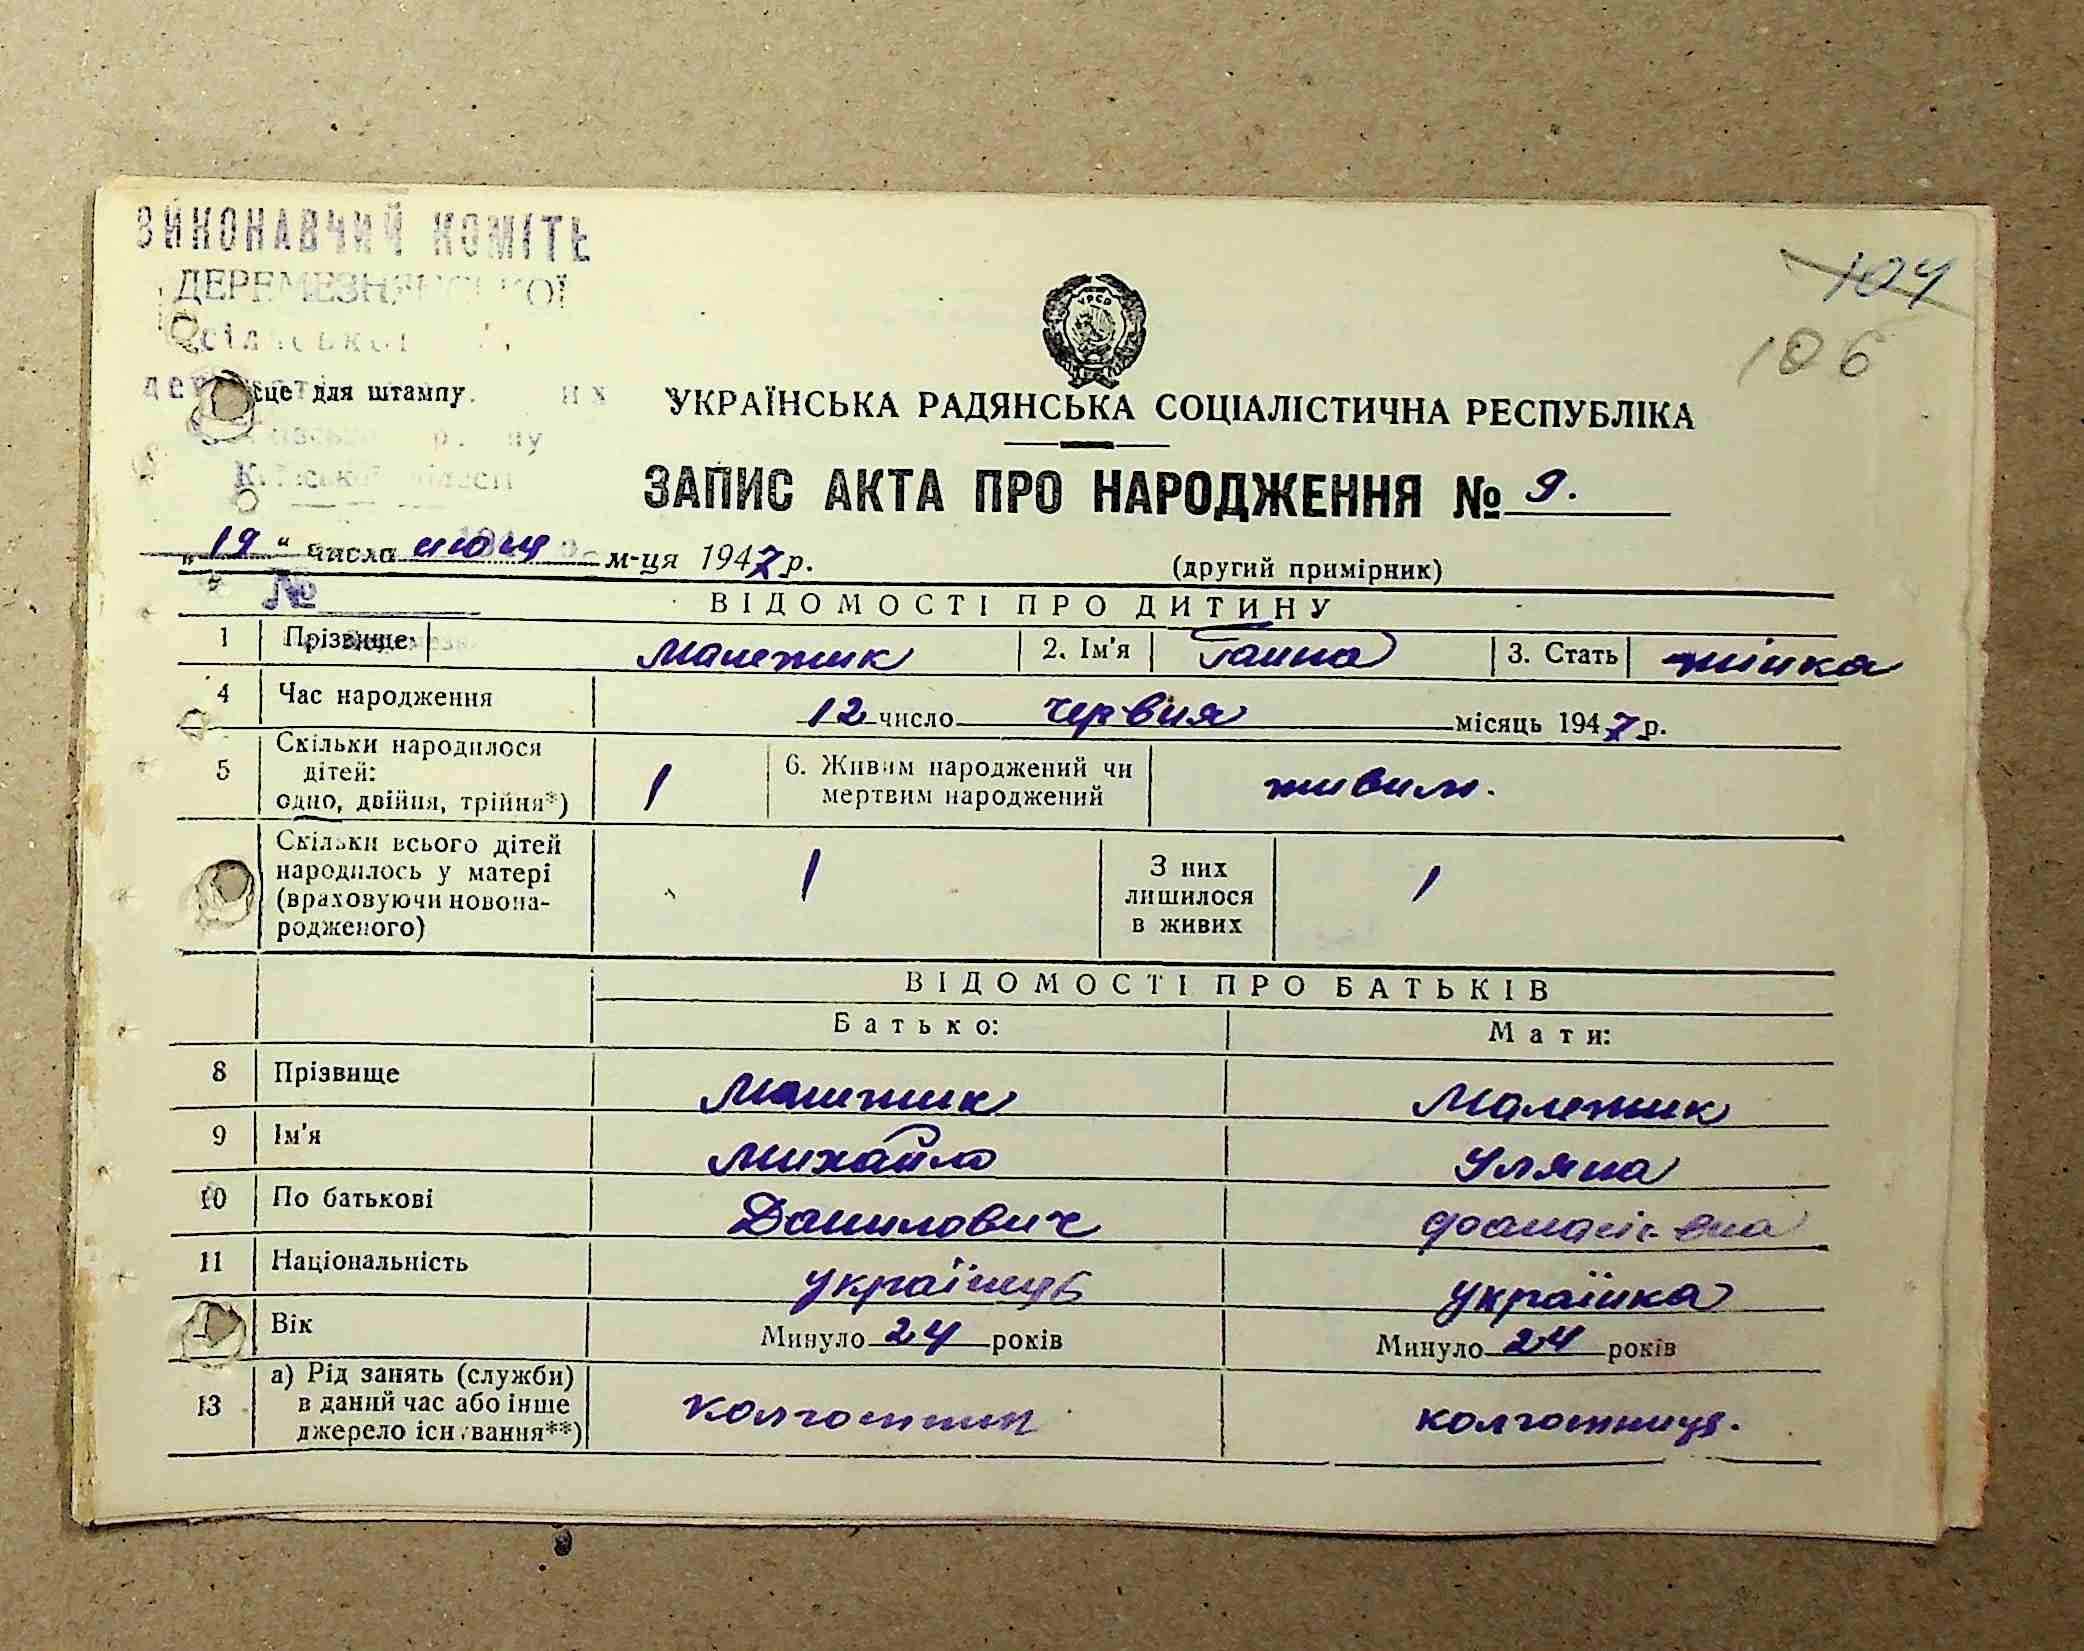 ВИКОНАВЧИЙ КОМІТЕ
ДЕРЕМЕЗНЯНСЬКОЇ
сільської
104
106
УРСР
Місце для штампу.
УКРАЇНСЬКА РАДЯНСЬКА СОЦІАЛІСТИЧНА РЕСПУБЛІКА
Київської області
ЗАПИС АКТА ПРО НАРОДЖЕННЯ № 9.
"19" числа июня м-ця 1947 р. (другий примірник)
№
ВІДОМОСТІ ПРО ДИТИНУ
1 Прізвище Малежик 2. Ім'я Ганна 3. Стать жінка
4 Час народження 12 число червня місяць 1947 р.
5 Скільки народилося дітей: одно, двійня, трійня*) 1 6. Живим народжений чи мертвим народжений живим.
Скільки всього дітей народилось у матері (враховуючи новонародженого) 1 З них лишилося в живих 1
ВІДОМОСТІ ПРО БАТЬКІВ
Батько: Мати:
8 Прізвище Малежик Малежик
9 Ім'я Михайло Уляна
10 По батькові Данилович
11 Національність українець українка
Вік Минуло 24 років Минуло 24 років
13 а) Рід занять (служби) в даний час або інше джерело існування**) колгоспник колгоспниця.